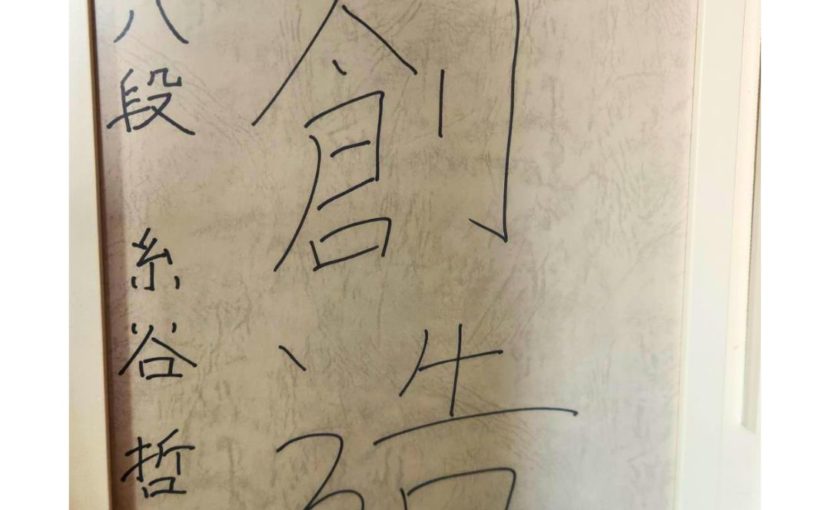 創造
八段 糸谷哲